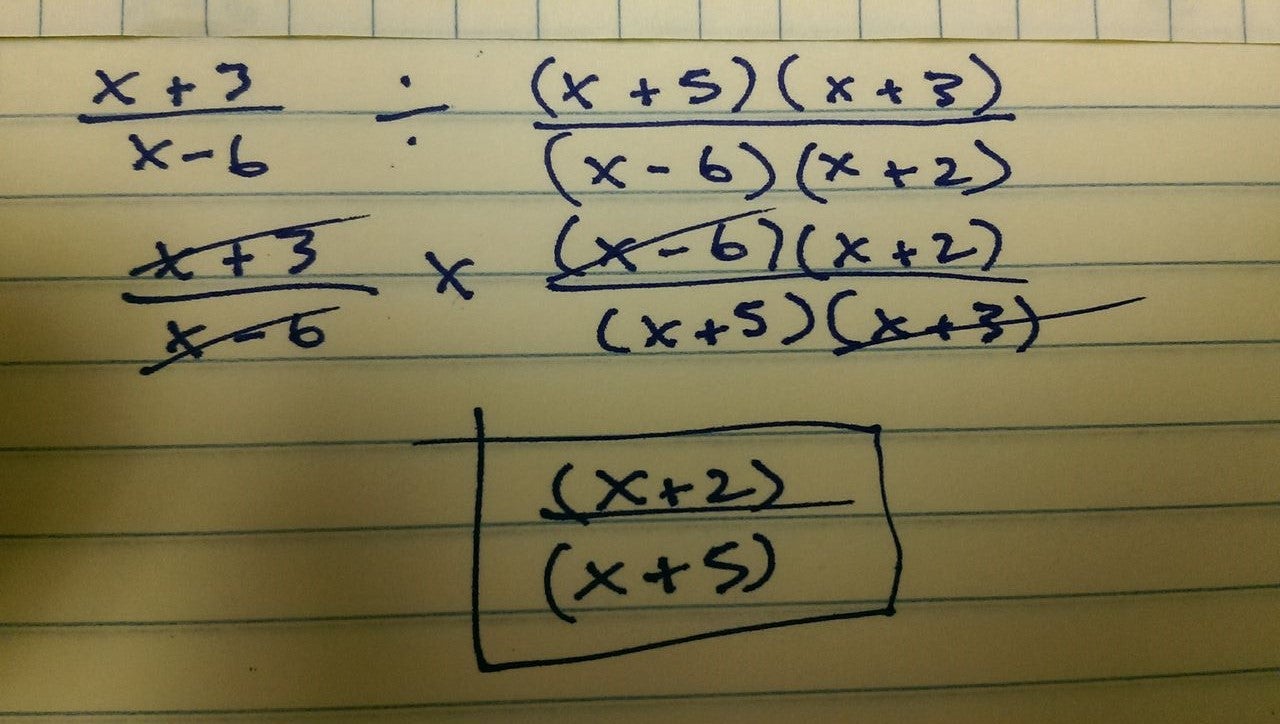 x + 3 / x - 6 ÷ (x + 5)(x + 3) / (x - 6)(x + 2)
x + 3 / x - 6 x (x - 6)(x + 2) / (x + 5)(x + 3)
(x + 2) / (x + 5)